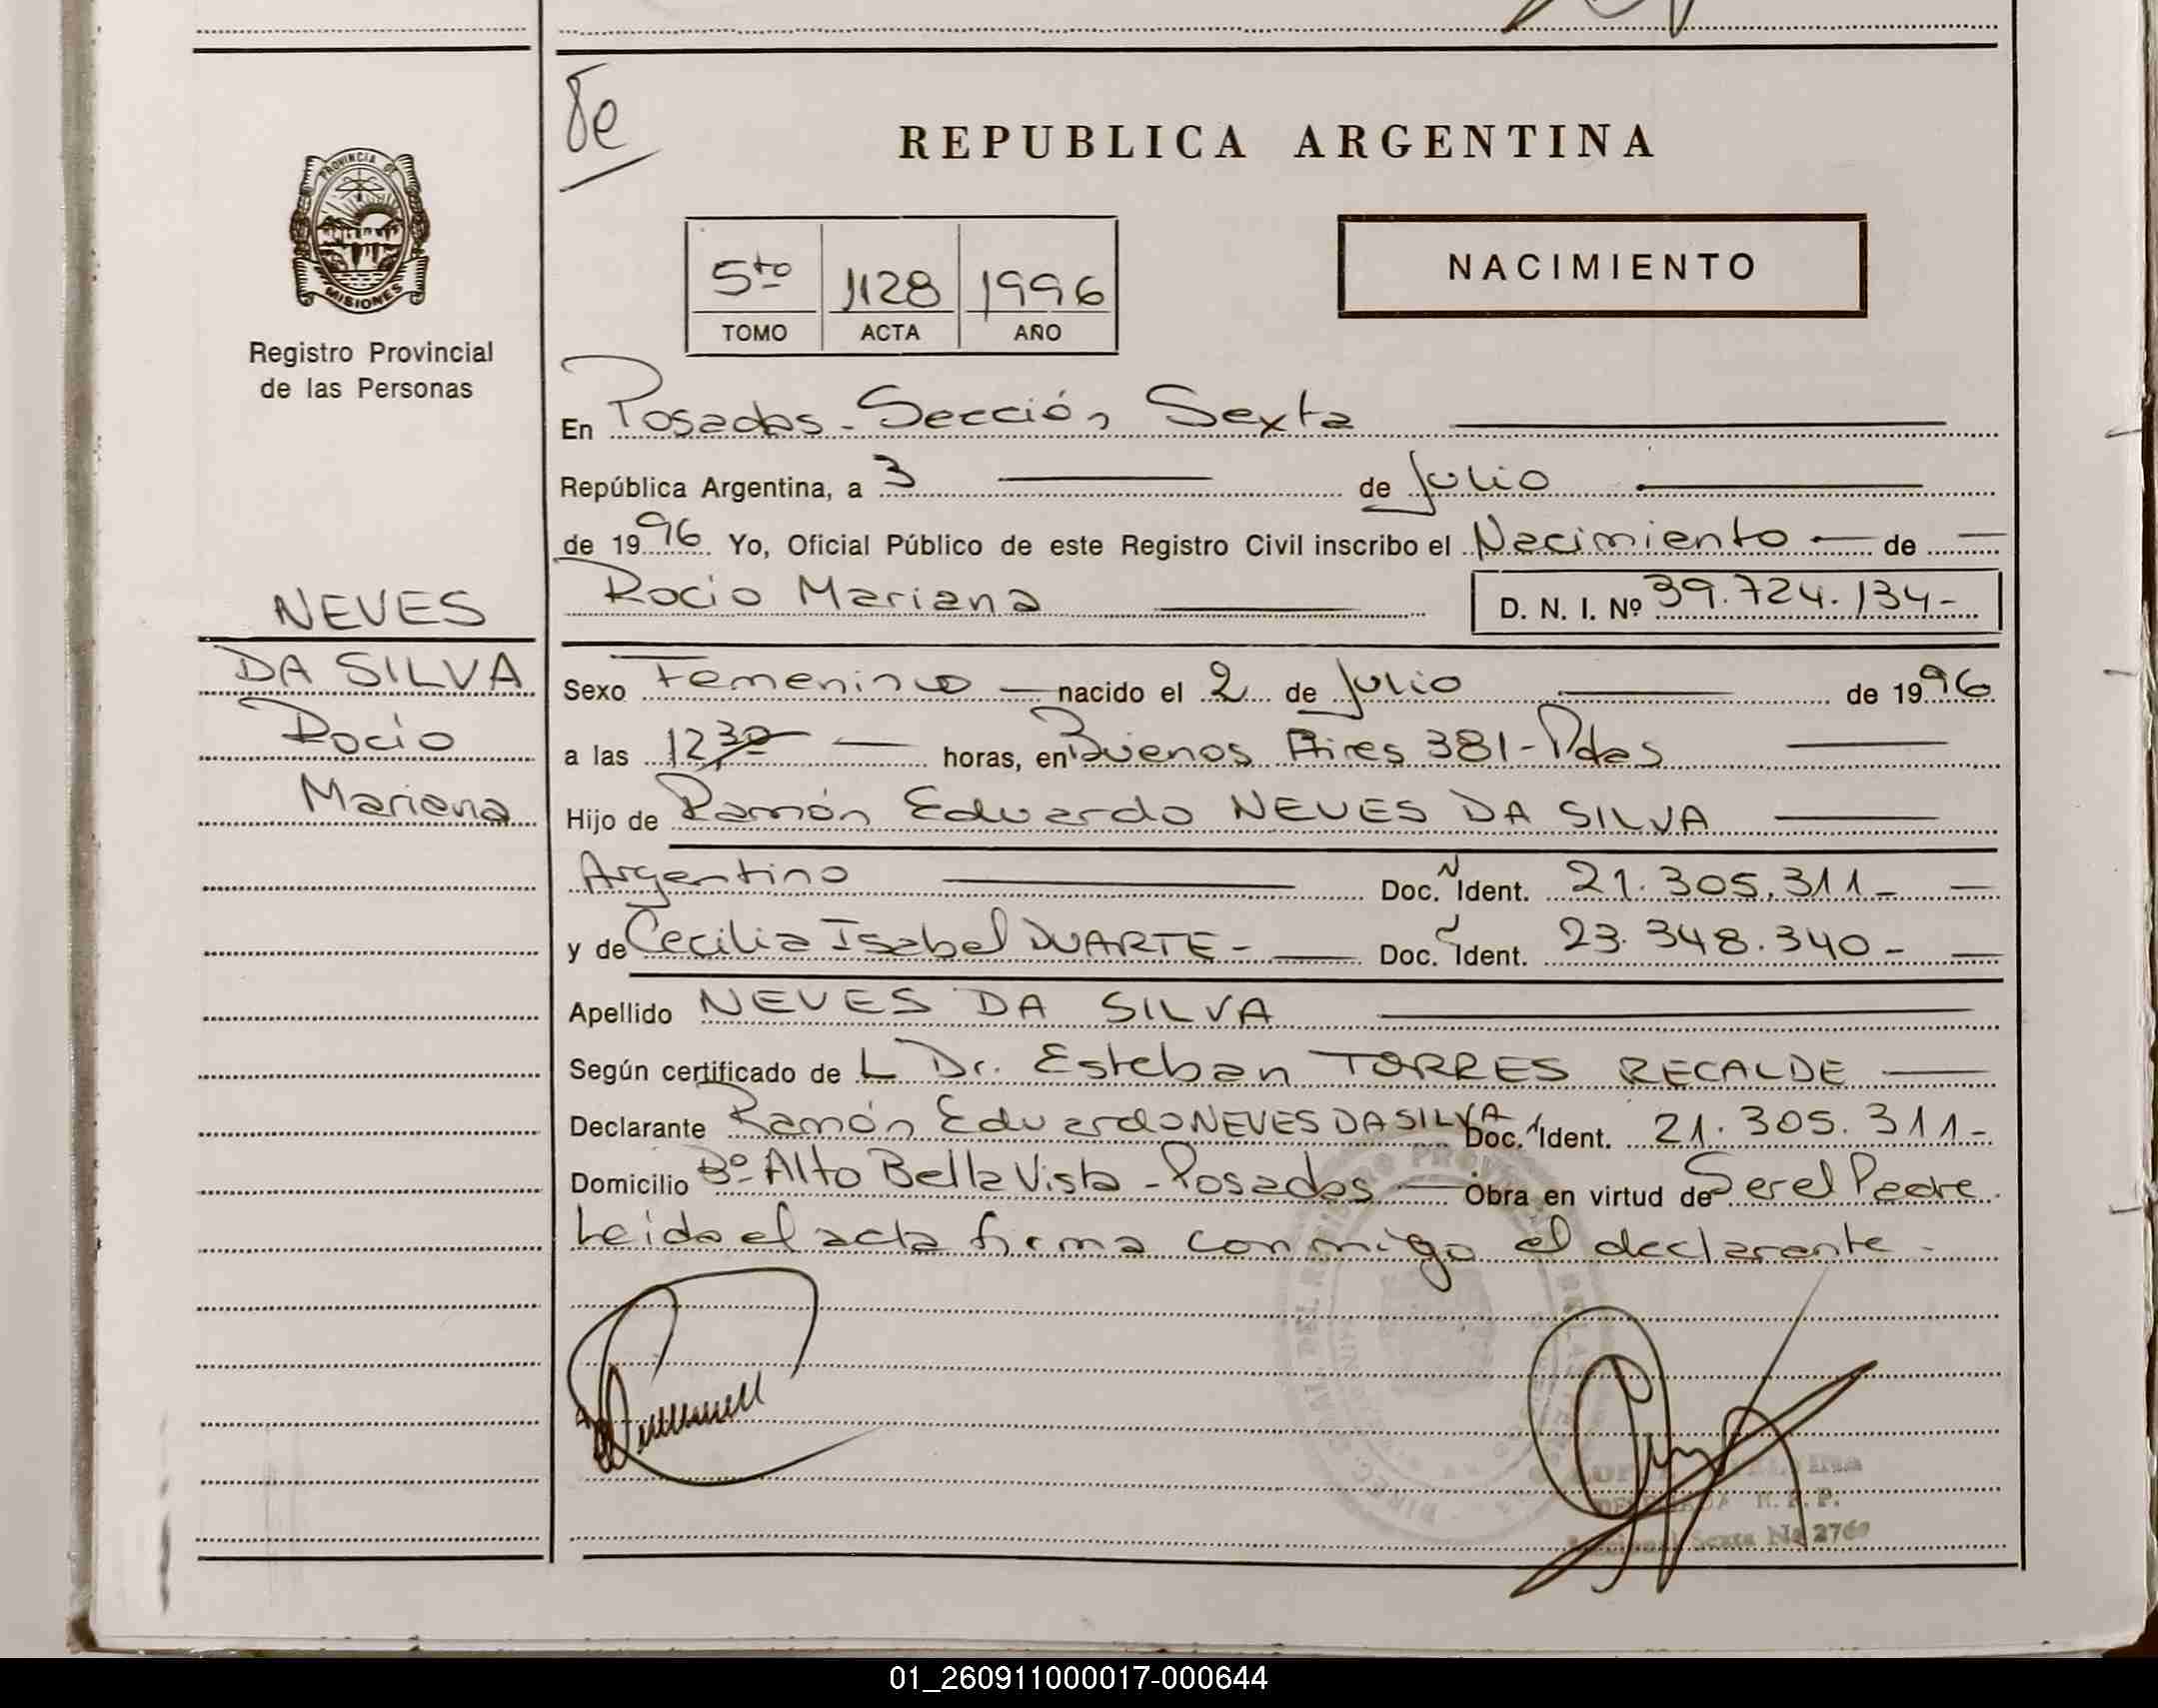 8e
REPUBLICA ARGENTINA
PROVINCIA DE
MISIONES
Registro Provincial
de las Personas
5to 1128 1996
TOMO ACTA AÑO
NACIMIENTO
En Posadas - Sección Sexta
República Argentina, a 3 de Julio
de 1996 Yo, Oficial Público de este Registro Civil inscribo el Nacimiento de
Rocio Mariana D. N. I. Nº 39.724.134-
NEVES
DA SILVA
Rocio
Mariana
Sexo Femenino nacido el 2 de Julio de 1996
a las 12,30 horas, en Buenos Aires 381 - Pdas
Hijo de Ramón Eduardo NEVES DA SILVA
Argentino Doc. Ident. 21.305.311-
y de Cecilia Isabel DUARTE - Doc. Ident. 23.348.340-
Apellido NEVES DA SILVA
Según certificado de L Dr. Esteban TORRES RECALDE
Declarante Ramón Eduardo NEVES DA SILVA Doc. Ident. 21.305.311-
Domicilio Bº Alto Bella Vista - Posadas Obra en virtud de Ser el Padre
Leida el acta firma conmigo el declarante -
R. P. P.
Sexta Nº 2760
01_260911000017-000644